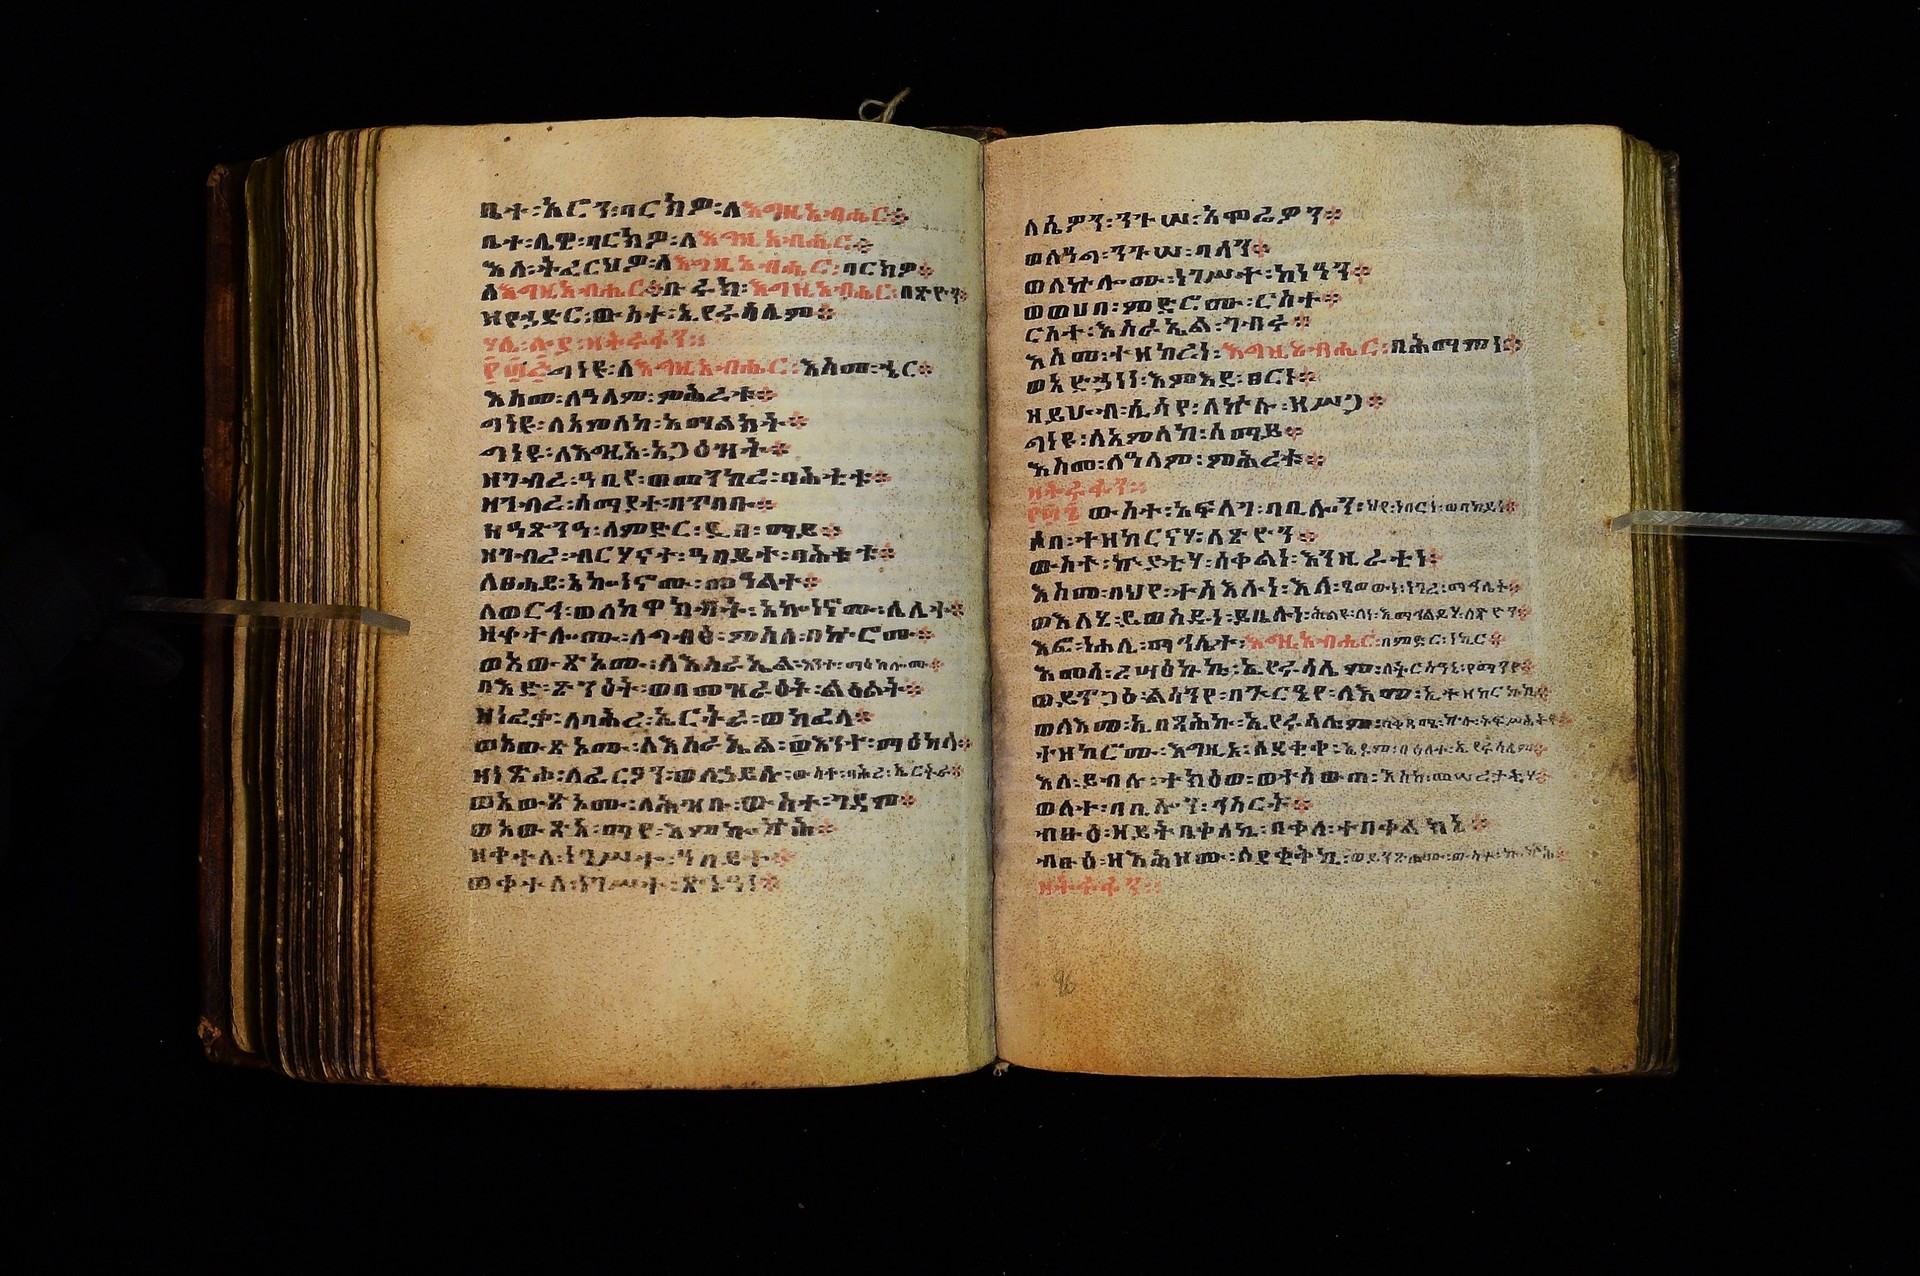 ቤተ፡አሮን፡ባርክዎ፡ለእግዚአብሔር፨
ቤተ፡ሌዊ፡ባርክዎ፡ለእግዚአብሔር፨
እለ፡ትፈርህዎ፡ለእግዚአብሔር፡ባርክዎ፨
ለእግዚአብሔር፨ቡሩክ፡እግዚአብሔር፡በጽዮን፨
ዘየኃድር፡ውስተ፡ኢየሩሳሌም፨
ሃሌ፡ሉያ፡ዘትሩፋን።
፻፴፭ግነዩ፡ለእግዚአብሔር፡እስመ፡ኄር፨
እስመ፡ለዓለም፡ምሕረቱ፨
ግነዩ፡ለአምላከ፡አማልክት፨
ግነዩ፡ለእግዚአ፡አጋዕዝት፨
ዘገብረ፡ዓቢየ፡ወመንክረ፡ባሕቲቱ፨
ዘገብረ፡ሰማያተ፡በጥበቡ፨
ዘዓጽንዓ፡ለምድር፡ዲበ፡ማይ፨
ዘገብረ፡ብርሃናተ፡ዓበይተ፡ባሕቲቱ፨
ለፀሐይ፡አኰነኖሙ፡መዓልተ፨
ለወርኅ፡ወለከዋክብት፡አኰነኖሙ፡ሌሊተ፨
ዘቀተሎሙ፡ለግብፅ፡ምስለ፡በኵሮሙ፨
ወአውጽኦሙ፡ለእስራኤል፡እንተ፡ማዕከሎሙ፨
በእድ፡ጽንዕት፡ወበመዝራዕት፡ልዕልት፨
ዘነፈቃ፡ለባሕረ፡ኤርትራ፡ወከፈላ፨
ወአውጽኦሙ፡ለእስራኤል፡እንተ፡ማዕከላ፨
ዘነጽሖ፡ለፈርዖን፡ወለኃይሉ፡ውስተ፡ባሕረ፡ኤርትራ፨
ወአውጽኦሙ፡ለሕዝቡ፡ውስተ፡ገዳም፨
ወአውጽአ፡ማየ፡እምኰኵሕ፨
ዘቀተለ፡ነገሥተ፡ዓበይተ፨
ወቀተለ፡ነገሥተ፡ጽኑዓነ፨
ለሴዎን፡ንጉሠ፡አሞሬዎን፨
ወለዓግ፡ንጉሠ፡ባሳን፨
ወለኵሎሙ፡ነገሥተ፡ከነዓን፨
ወወሀበ፡ምድሮሙ፡ርስተ፨
ርስተ፡እስራኤል፡ገብሩ፨
እስመ፡ተዘከረነ፡እግዚአብሔር፡በሕማምነ፨
ወአድኃነነ፡እምእደ፡ፀርነ፨
ዘይሁብ፡ሲሳየ፡ለኵሉ፡ዘሥጋ፨
ግነዩ፡ለአምላከ፡ሰማይ፨
እስመ፡ለዓለም፡ምሕረቱ፨
ዘትሩፋን።
፻፴፮ ውስተ፡አፍላገ፡ባቢሎን፡ህየ፡ነበርነ፡ወበከይነ፨
ሶበ፡ተዘከርናሃ፡ለጽዮን፨
ውስተ፡ኵያቲሃ፡ሰቀልነ፡እንዚራቲነ፨
እስመ፡በህየ፡ተስእሉነ፡እለ፡ፄወውነ፡ነገረ፡ማኅሌት፨
ወእለሂ፡ይወስዱነ፡ይቤሉነ፡ኅልዩ፡ለነ፡እማኅልይሃ፡ለጽዮን፨
እፎ፡ነሐሊ፡ማኅሌተ፡እግዚአብሔር፡በምድር፡ነኪር፨
እመሰ፡ረሣዕኩኪ፡ኢየሩሳሌም፡ለትርሳዓኒ፡የማንየ፨
ወይጥጋዕ፡ልሳንየ፡በጕርዔየ፡ለእመ፡ኢተዘከርኩኪ፨
ወለእመ፡ኢበጻሕኩ፡ኢየሩሳሌም፡
ተዘከሮሙ፡እግዚኦ፡ለደቂቀ፡ኤዶም፡በዕለተ፡ኢየሩሳሌም፨
እለ፡ይብሉ፡ንስቱ፡እስከ፡መሠረታቲሃ፨
ወለተ፡ባቢሎን፡ኅስርት፨
ብፁዕ፡ዘይትቤቀለኪ፡በቀለ፡ተበቀልክነ፨
ብፁዕ፡ዘእሕዞሙ፡ለደቂቅኪ፡
ዘትሩፋን።
96